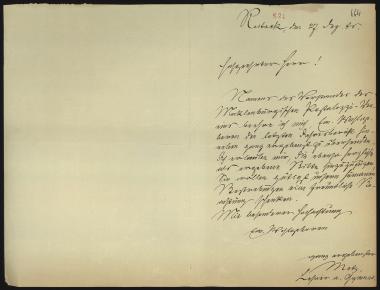 164
Rostock, den 27 Dez 85.
Hochgeehrter Herr!
Namens des Vorstandes des
Mecklenburgischen Pestalozzi-Ver-
eins beehre ich mich, Ew. Wohlge-
boren den letzten Jahresbericht hier-
neben ganz ergebenst zu übersenden.
Ich erlaube mir, die ebenso herzliche
als ergebene Bitte hinzuzufügen
Sie wollen gütigst unsern humanen
Bestrebungen eine freundliche Be-
achtung schenken.
Mit besonderer Hochachtung
Ew. Wohlgeboren
ganz ergebenster
Lehrer a. Gymnas.